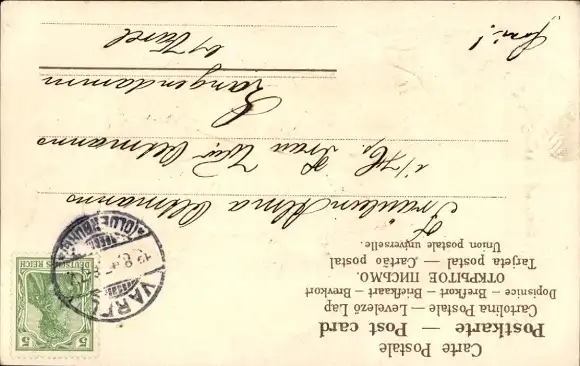 Carte Postale
Postkarte — Post card
Cartolina Postale — Levelező Lap
Dopisnice — Brefkort — Briefkaart — Brevkort
ОТКРЫТОЕ ПИСЬМО.
Tarjeta postal — Cartão postal
Union postale universelle.
5 5
DEUTSCHES REICH
VAREL
(OLDENBURG)
12.8.
Fräulein Alma Oltmanns
Frau Wwe Oltmanns
Langendamm
b/ Varel